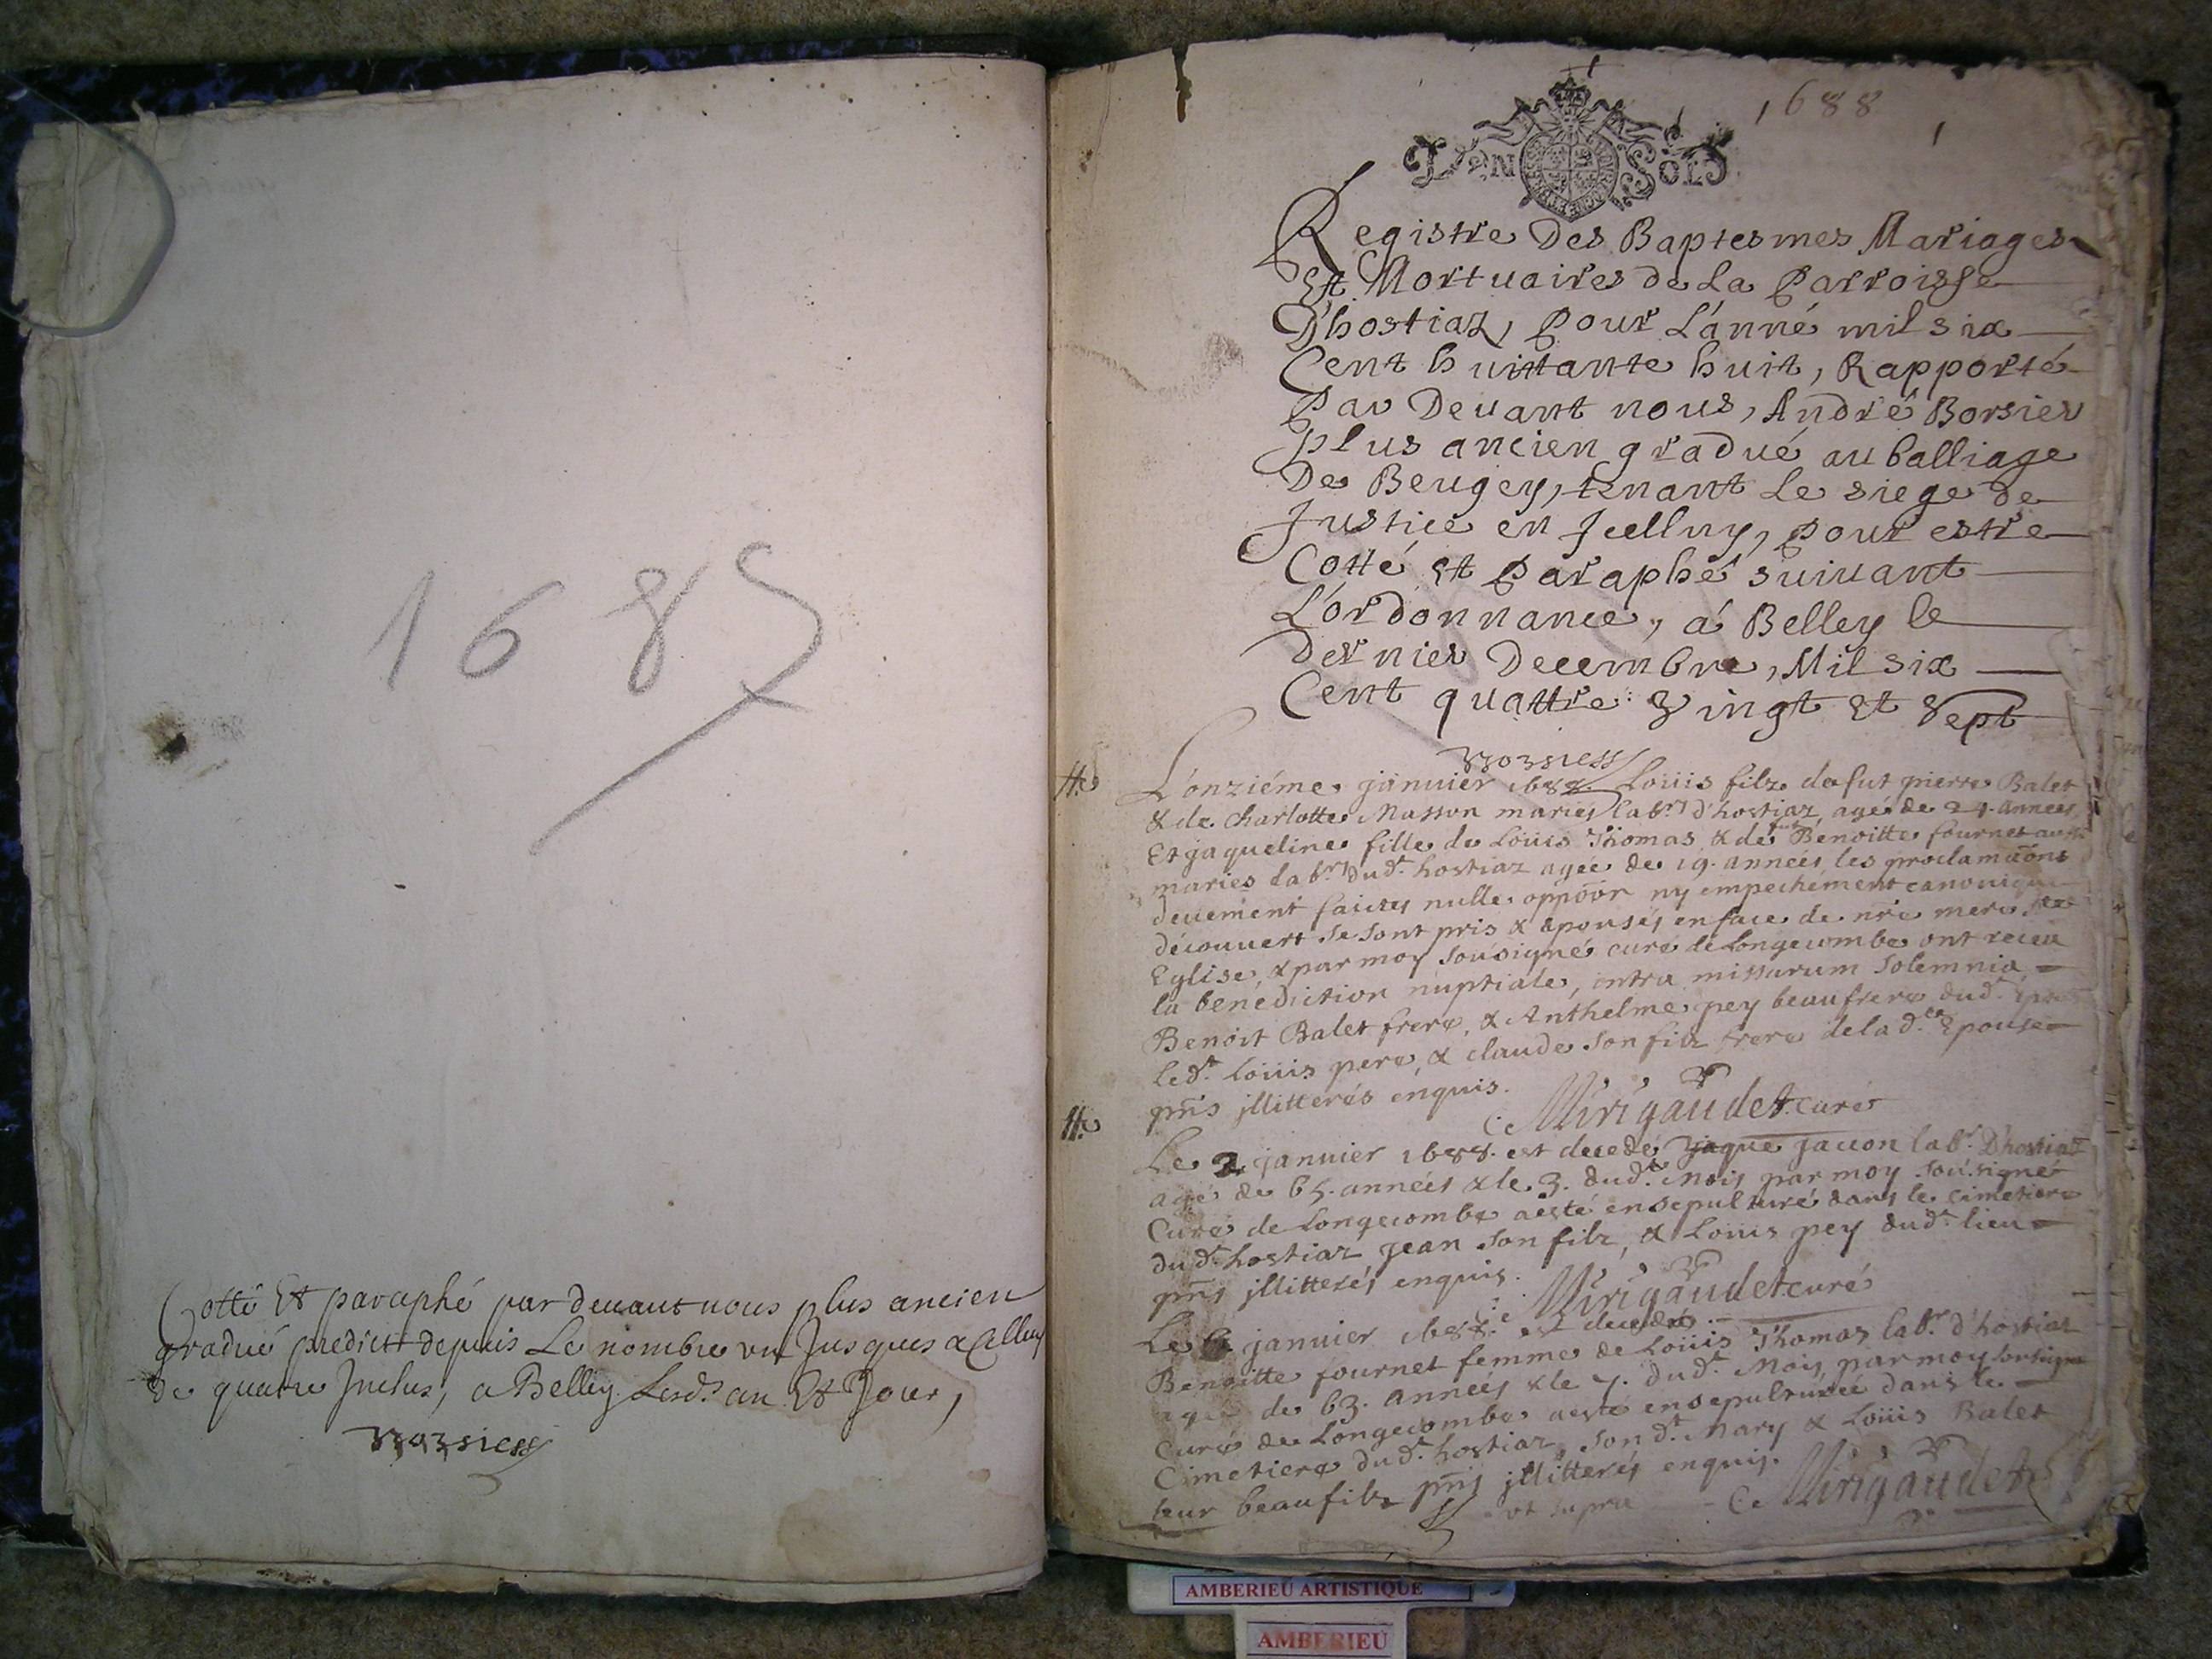 1685
Cotté Et paraphé par devant nous plus ancien
gradué predict depuis Le nombre un Jusques a Celluy
de quatre Inclus, a Belley Lesd. an Et Jour,
Borsier
1688
1
DEN SOLS
Registre Des Baptesmes Mariages
Et Mortuaires de La Parroisse
D'hostiaz, Pour L'anné mil six
Cent huittante huit, Rapporté
Par Devant nous, André Borsier
plus ancien gradué au balliage
De Beugey, tenant Le siege de
Justice en Jcelluy, pour estre
Cotté Et Paraphé suivant
L'ordonnance, á Belley le
Dernier Decembre, Mil six
Cent quattre Vingt Et Sept
Borsier
L'onziéme januier 1688. Loüis filz de fut pierre Balet
& de Charlotte Masson mariés lab.rs d'hostiaz, agé de 24. années,
Et jaqueline fille de Loüis Thomas & de fut Benoitte fournet aussi
mariés lab.rs dud.t hostiaz agée de 19. années, les proclamaõns
deuement faictes nulle oppõõn ny empechément canonique
découuert se sont pris & épousés en face de nr̃e mere Ste
Eglise, & par moy soúsigné curé de Longecombe ont receu
la benediction nuptiale, intra missarum Solemnia,
Benoit Balet frere, & Anthelme pey beaufrere dud.t époux
led.t Loüis pere, & claude son filz frere de lad.te Epouse
pñs jllitterés enquis.
C Mirigaudet curé
Le 2 januier 1688. est decedé jaque jacion lab.r D'hostiaz
agé de 65. années & le 3. dud.t Mois par moy soúsigné
Curé de Longecombe a esté ensepulturé dans le cimetiere
dud.t hostiaz jean son filz, & Loüis pey dud.t lieu
pñs jllitterés enquis.
C Mirigaudet curé
Le 6 januier 1688. est decedée
Benoitte fournet femme de Loüis Thomas lab.r d'hostiaz
agée de 63. années & le 7. dud.t Mois, par moy sousigné
curé de Longecombe a esté ensepulturée dans le
Cimetiere dud.t hostiaz, son d.t Mary & Loüis Balet
leur beaufilz pñs jllitterés enquis.
ut supra C Mirigaudet
AMBERIEU ARTISTIQUE
AMBERIEU